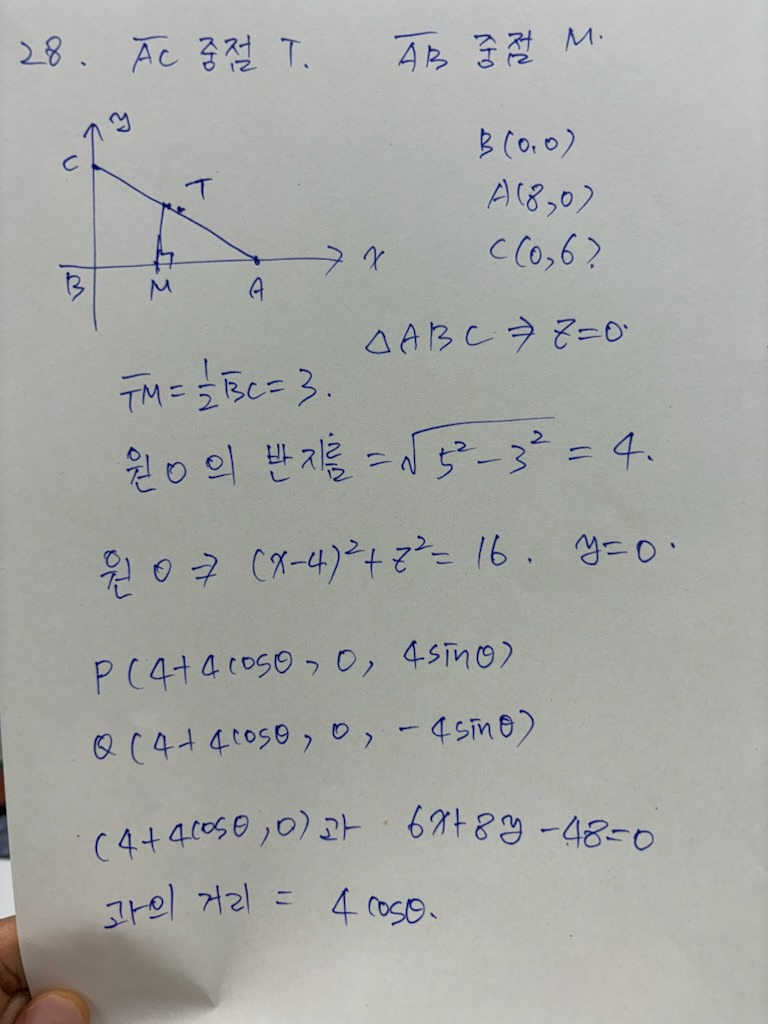 28. A̅C̅ 중점 T. A̅B̅ 중점 M.
y
C
T
B(0,0)
A(8,0)
C(0,6)
x
B M A
△ABC ⇒ z=0.
T̅M̅ = 1/2 B̅C̅ = 3.
원 O의 반지름 = √(5²-3²) = 4.
원 O ⇒ (x-4)²+z²= 16. y=0.
P(4+4cosθ, 0, 4sinθ)
Q(4+4cosθ, 0, -4sinθ)
(4+4cosθ, 0)과 6x+8y-48=0
과의 거리 = 4cosθ.